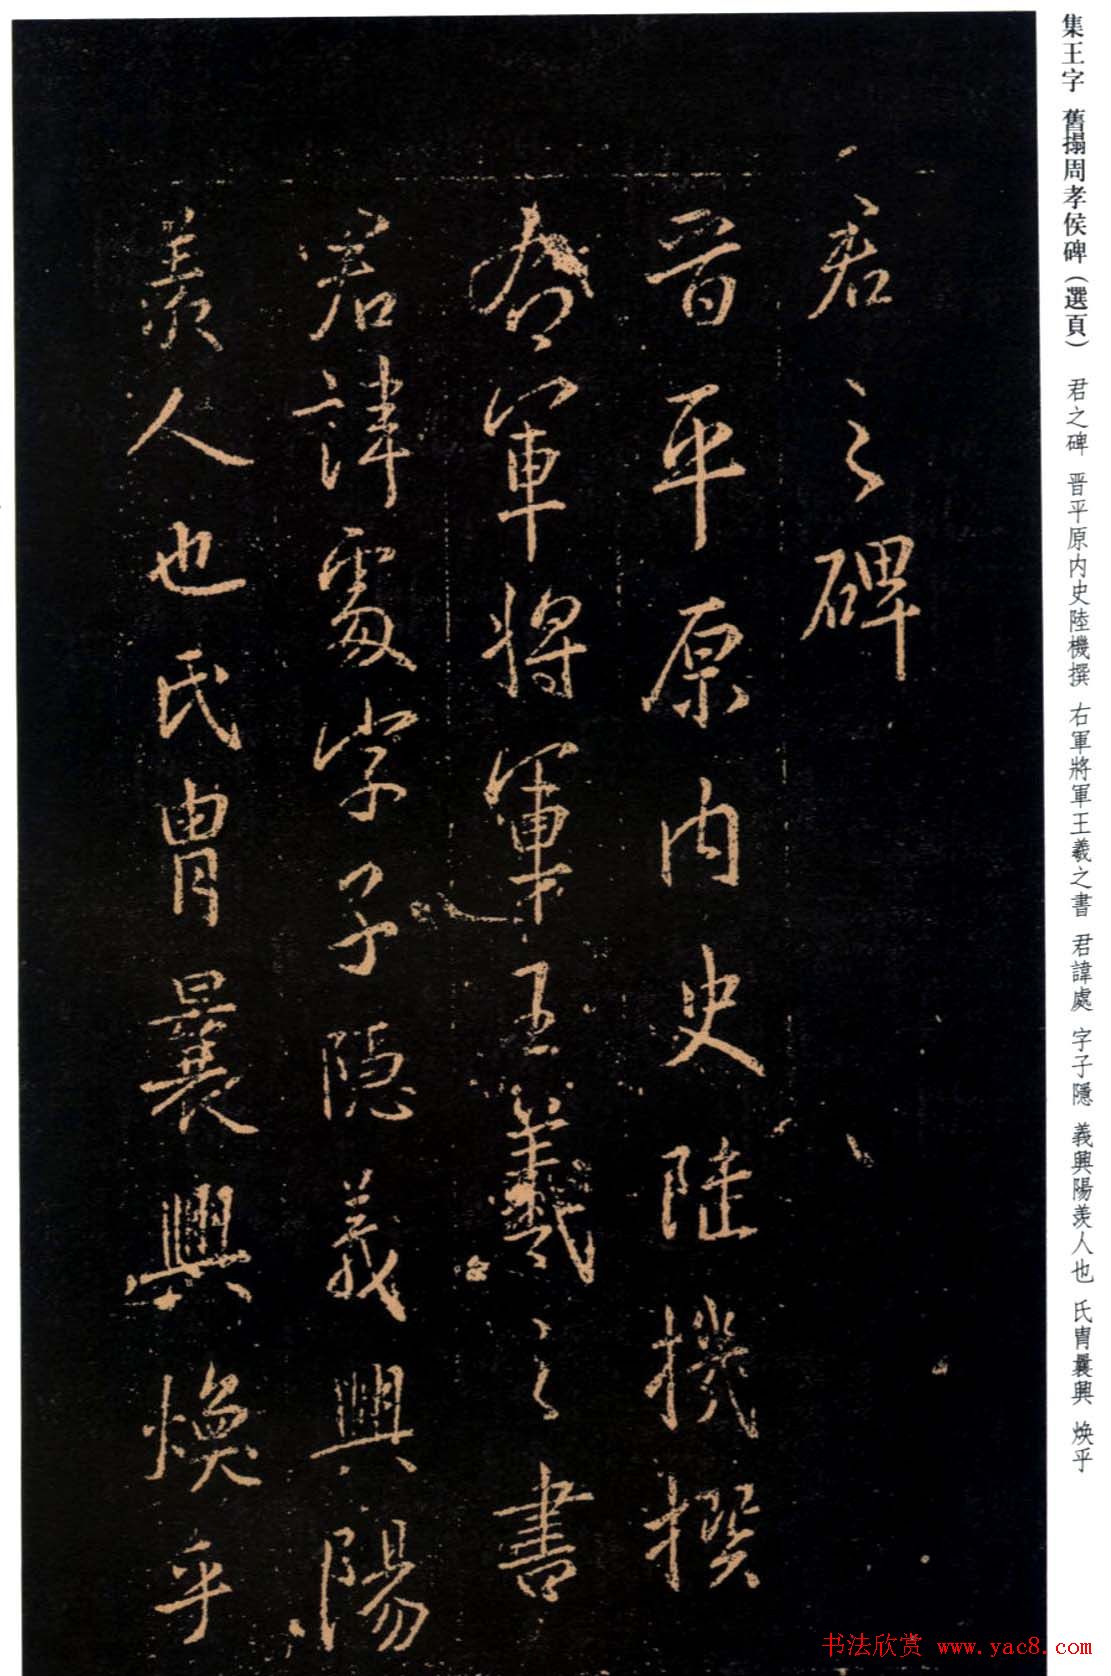 集王字 舊搨周孝侯碑（選頁） 君之碑 晋平原内史陸機撰 右軍將軍王羲之書 君諱處 字子隱 義興陽羡人也 氏胄曩興 焕乎
君之碑
晋平原内史陸機撰
右軍將軍王羲之書
君諱處字子隱義興陽
羡人也氏胄曩興焕乎
书法欣赏 www.yac8.com